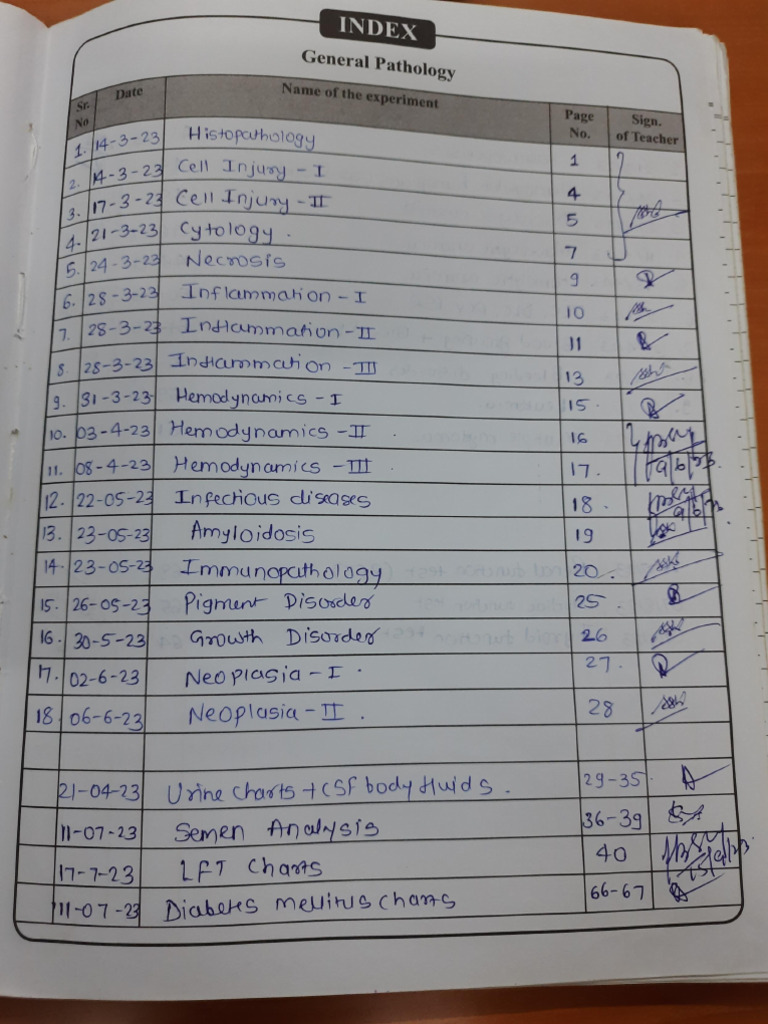 INDEX
General Pathology
Sr. No Date Name of the experiment Page No. Sign. of Teacher
1. 14-3-23 Histopathology 1
2. 14-3-23 Cell Injury - I 4
3. 17-3-23 Cell Injury - II 5
4. 21-3-23 Cytology . 7
5. 24-3-23 Necrosis 9
6. 28-3-23 Inflammation - I 10
7. 28-3-23 Inflammation - II 11
8. 28-3-23 Inflammation - III 13
9. 31-3-23 Hemodynamics - I 15 .
10. 03-4-23 Hemodynamics - II . 16
11. 08-4-23 Hemodynamics - III . 17 .
12. 22-05-23 Infectious diseases 18 .
13. 23-05-23 Amyloidosis 19
14. 23-05-23 Immunopathology 20 .
15. 26-05-23 Pigment Disorder 25 .
16. 30-5-23 Growth Disorder 26
17. 02-6-23 Neoplasia - I . 27 .
18. 06-6-23 Neoplasia - II . 28
21-04-23 Urine charts + CSF body fluids . 29-35
11-07-23 Semen Analysis 36-39
17-7-23 LFT Charts 40
11-07-23 Diabetes mellitus charts 66-67